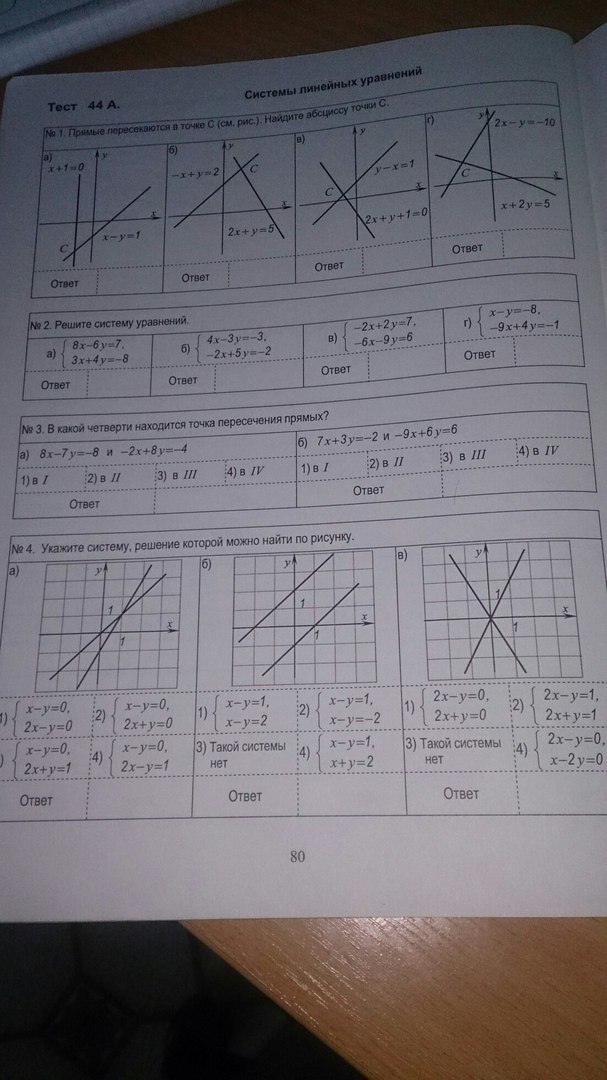 Тест 44 А.
Системы линейных уравнений
№ 1. Прямые пересекаются в точке С (см. рис.). Найдите абсциссу точки С.
а)
x+1=0
y
x
C
x−y=1
Ответ
б)
−x+y=2
y
C
x
2x+y=5
Ответ
в)
y
y−x=1
C
x
2x+y+1=0
Ответ
г)
y
2x−y=−10
C
x
x+2y=5
Ответ
№ 2. Решите систему уравнений.
а) { 8x−6y=7,
3x+4y=−8
Ответ
б) { 4x−3y=−3,
−2x+5y=−2
Ответ
в) { −2x+2y=7,
−6x−9y=6
Ответ
г) { x−y=−8,
−9x+4y=−1
Ответ
№ 3. В какой четверти находится точка пересечения прямых?
а) 8x−7y=−8 и −2x+8y=−4
1) в I 2) в II 3) в III 4) в IV
Ответ
б) 7x+3y=−2 и −9x+6y=6
1) в I 2) в II 3) в III 4) в IV
Ответ
№ 4. Укажите систему, решение которой можно найти по рисунку.
а)
y
1
x
1
1) { x−y=0,
2x−y=0
2) { x−y=0,
2x+y=0
) { x−y=0,
2x+y=1
4) { x−y=0,
2x−y=1
Ответ
б)
y
1
x
1
1) { x−y=1,
x−y=2
2) { x−y=1,
x−y=−2
3) Такой системы
нет
4) { x−y=1,
x+y=2
Ответ
в)
y
1
x
1
1) { 2x−y=0,
2x+y=0
2) { 2x−y=1,
2x+y=1
3) Такой системы
нет
4) { 2x−y=0,
x−2y=0
Ответ
80